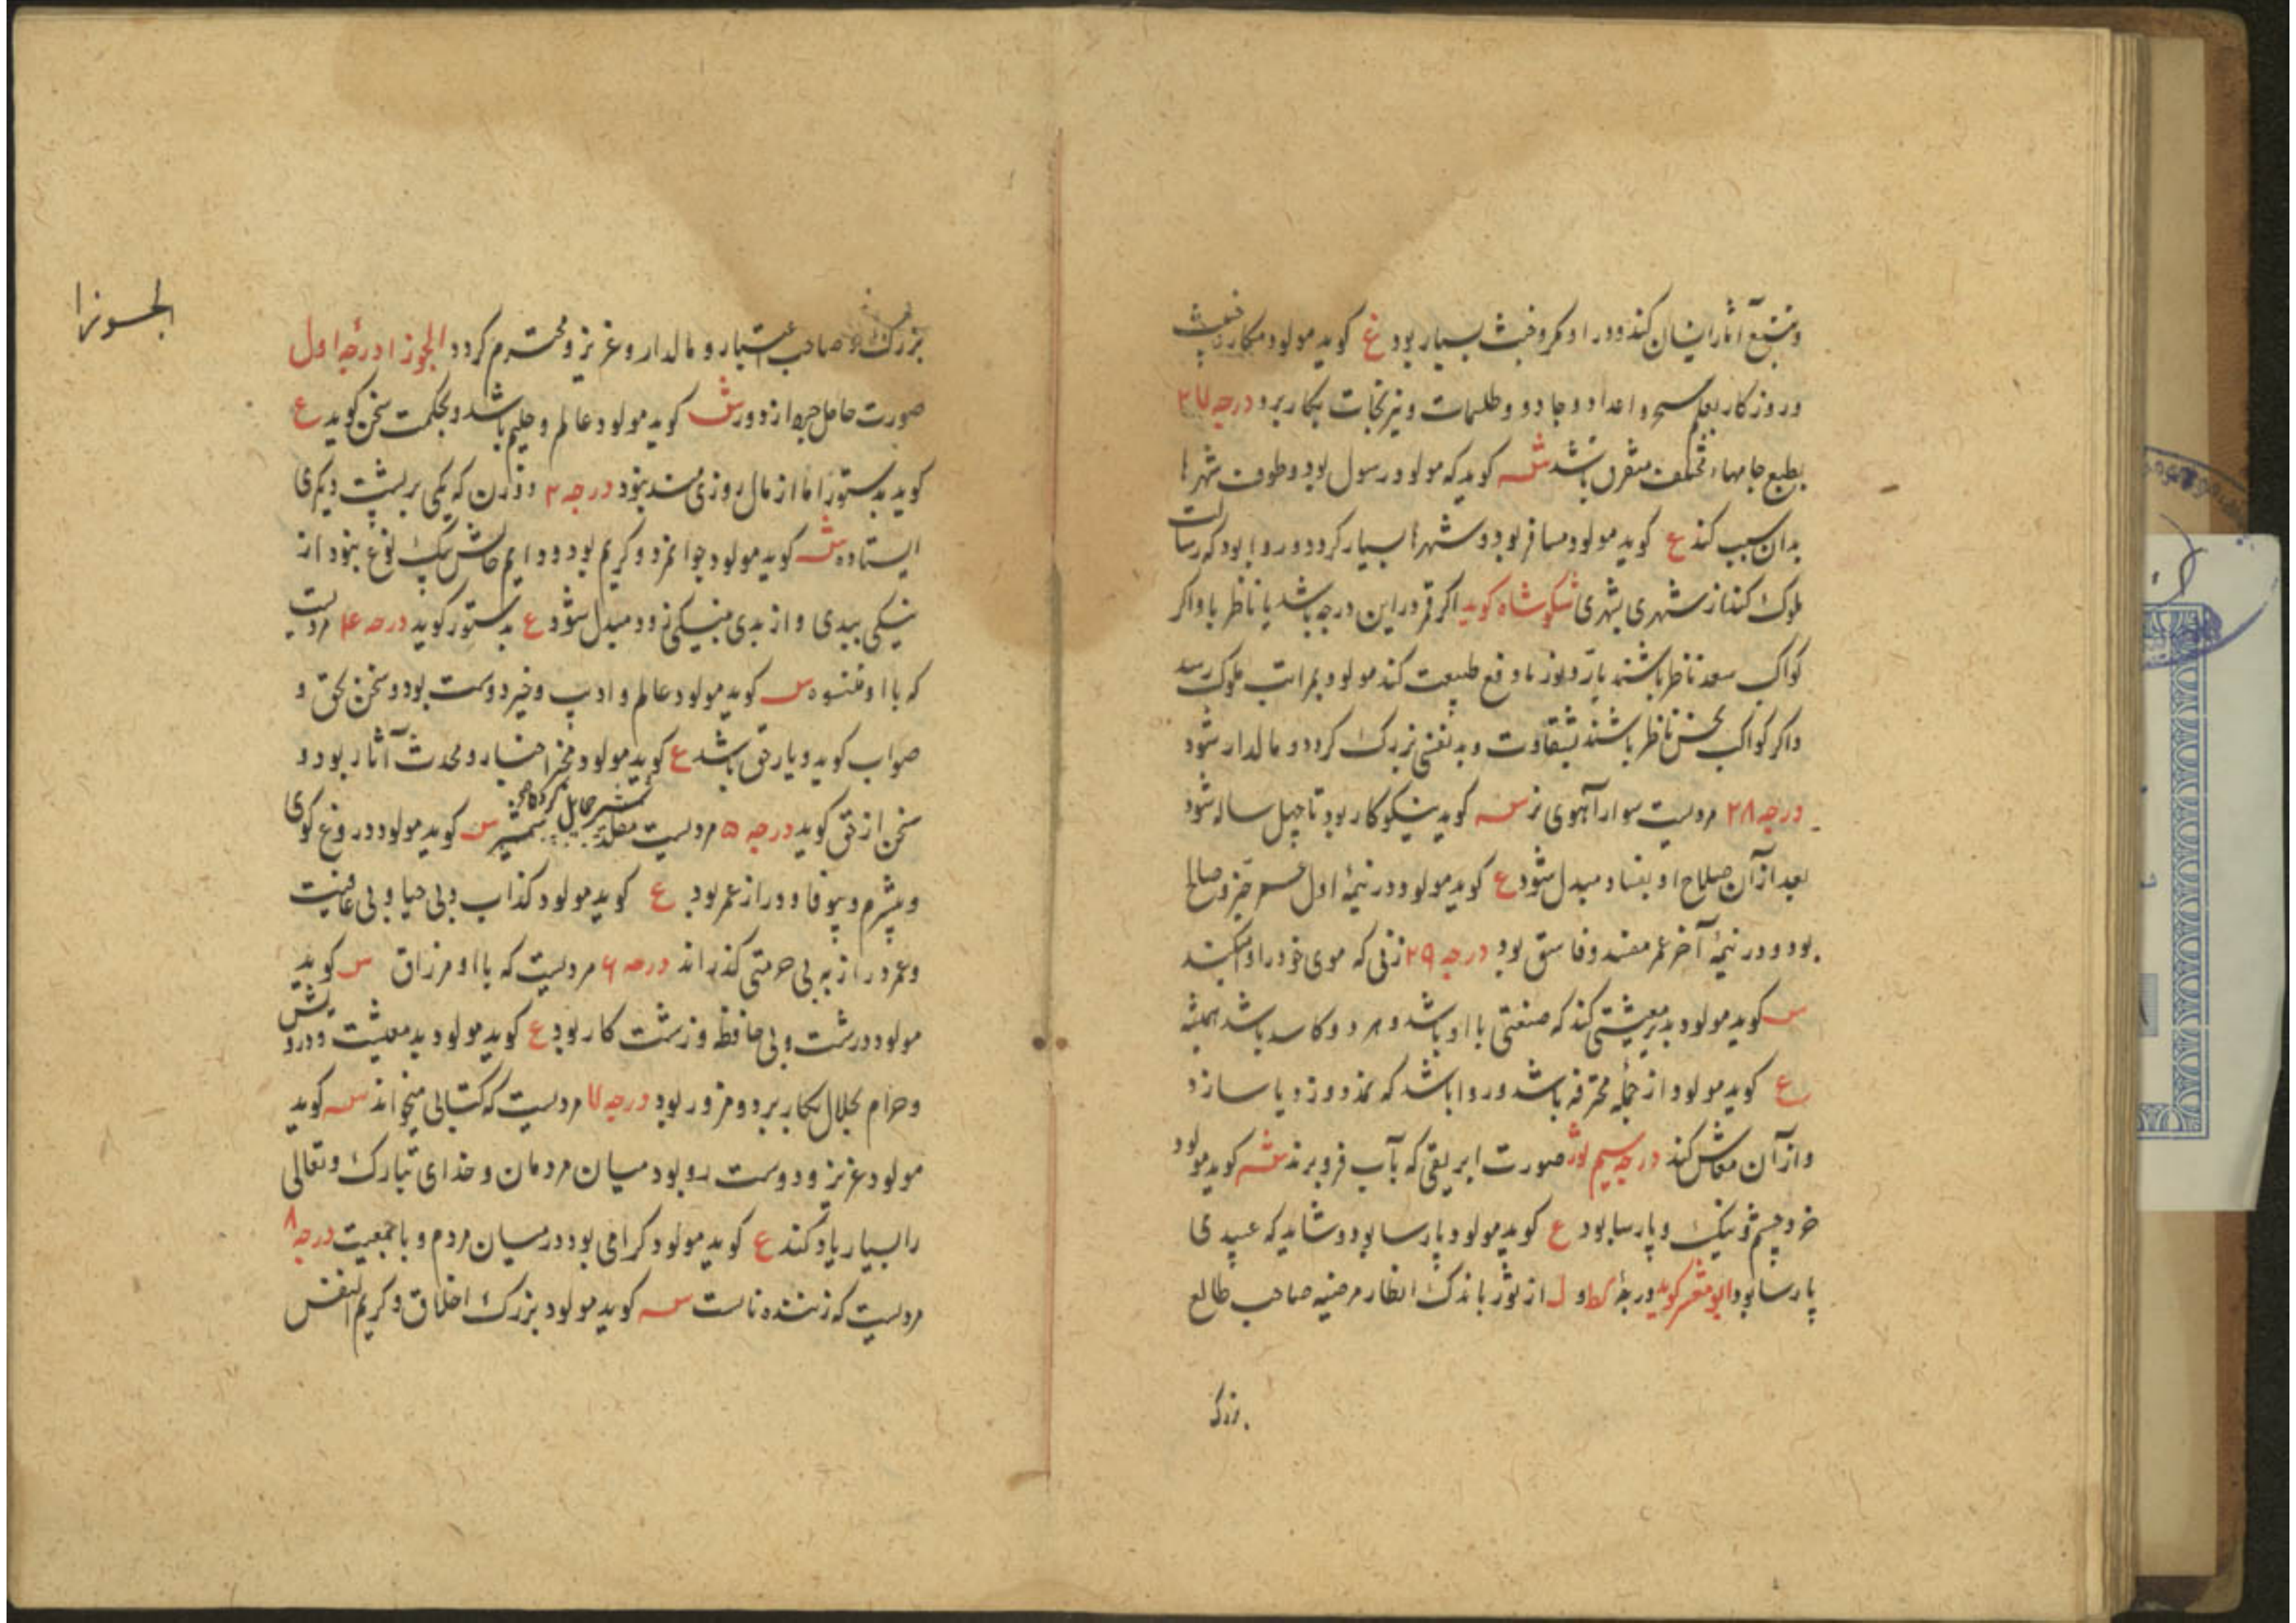 و تتبع آثار ایشان کند و در او مکر و خبث بسیار بود ع کوید مولود مکار
و روزکار بعلم سحر و اعداد و جادو و طلسمات و نیرنجات بکار برد درجه ۲۷
بطبع جامهاء مختلف متفرق باشد س کوید که مولود رسول بود و طوف شهرها
بدان سبب کند ع کوید مولود مسافر بود و شهرها بسیار کردد و روا بود که رسالت
ملوک کند از شهری بشهری تنکلوشاه کوید اکر قمر در این درجه باشد یا ناظر باو اکر
کواکب سعد ناظر باشند طبیعت کند مولود بمراتب ملوک رسد
و اکر کواکب نحس ناظر باشند بشقاوت و بدنفسی بزرک کردد و مالدار شود
درجه ۲۸ مردیست سوار آهوی نر س کوید نیکوکار بود تا چهل ساله شود
بعد از آن صلاح او بفساد مبدل شود ع کوید مولود در نیمهٔ اول عمر خیر و صالح
بود و در نیمهٔ آخر عمر مفسد و فاسق بود درجه ۲۹ زنی که موی خود را
س کوید مولود بد معیشتی کند که صنعتی با او باشد و هر دو کاسد باشد همیشه
ع کوید مولود از جملهٔ محترفه باشد و روا باشد که نمد دوزد یا سازد
و از آن معاش کند درجه سیم ثور صورت ابریقی که بآب فرو برند س کوید مولود
خرد چشم و نیک و پارسا بود ع کوید مولود پارسا بود و شاید که عبیدی
پارسا بود ابومعشر کوید درجهٔ کط و ل از ثور باندک انظار مرضیه صاحب طالع
بزرک
الجوزا
بزرک و صاحب اعتبار و مالدار و عزیز و محترم کردد الجوزا درجهٔ اول
صورت حامل حربه از دور س کوید مولود عالم و حلیم باشد و بحکمت سخن کوید ع
کوید بدستور اما از مال روزی مند نبود درجه ۲ دو زن که یکی بر پشت دیکری
ایستاده س کوید مولود جوانمرد و کریم بود و دوایم حالش بیک نوع نبود از
نیکی ببدی و از بدی بنیکی زود مبدل شود ع بدستور کوید درجه ۴ مردیست
که با او س کوید مولود عالم و ادیب و خیر دوست بود و سخن بحق و
صواب کوید و یار حق باشد ع کوید مولود مخبر اخبار و محدث آثار بود و
سخن از حق کوید درجه ۵ مردیست مقلد شمشیر حمایل کرده شمشیر س کوید مولود دروغ کوی
و بیشرم و بیوفا و دراز عمر بود ع کوید مولود کذاب و بی حیا و بی عافیت
و عمر دراز به بی حرمتی کذراند درجه ۶ مردیست که با او مرزاق س کوید
مولود درشت و بی حافظ و زشت کار بود ع کوید مولود بد معیشت و درویش
و حرام بحلال بکار برد و مزور بود درجه ۷ مردیست که کتابی میخواند س کوید
مولود عزیز و دوست رو بود میان مردمان و خدای تبارک و تعالی
را بسیار یاد کند ع کوید مولود کرامی بود در میان مردم و با جمعیت درجه ۸
مردیست که زننده نا‌ست س کوید مولود بزرک اخلاق و کریم النفس